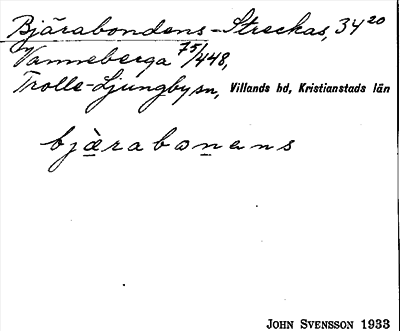 Bjärabondens-Streckas, 34²⁰
Vanneberga 75/448,
Trolle-Ljungby sn, Villands hd, Kristianstads län
bjä̱rabo̱nens
JOHN SVENSSON 1933